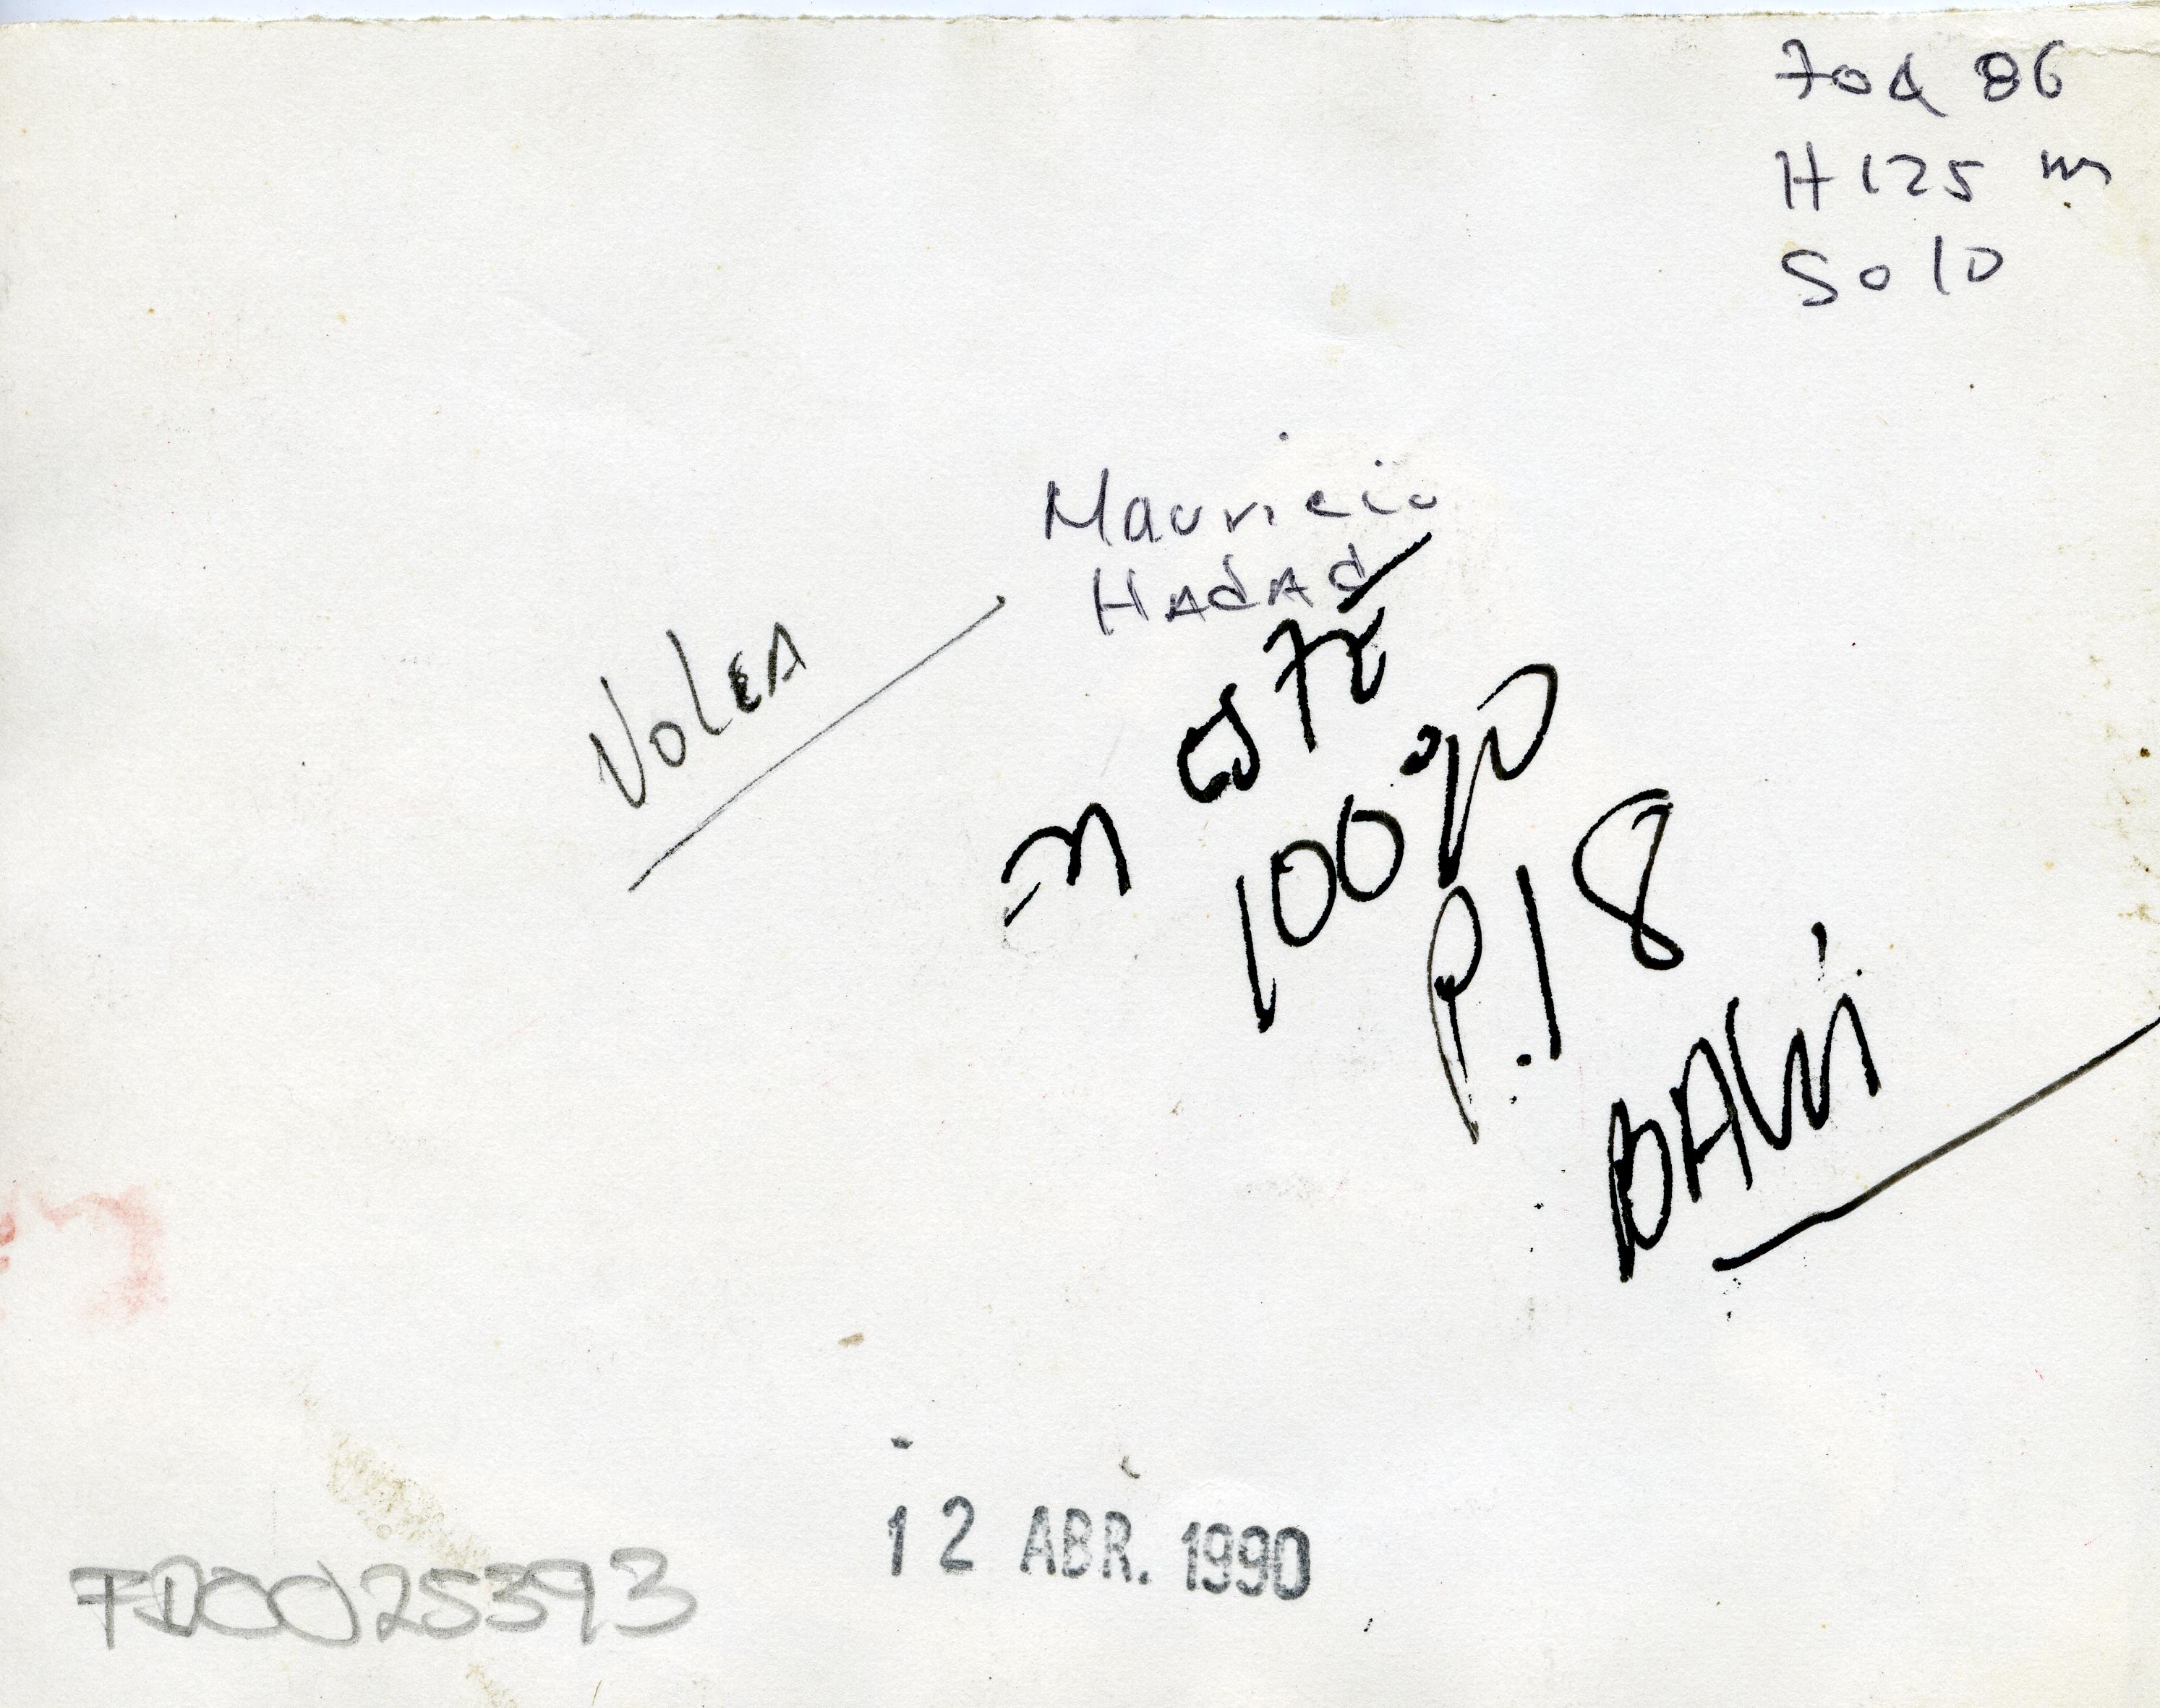 70d 86
H 125 m
Solo
Mauricio
HAdAd
VOLEA
72
100 90
P.18
12 ABR. 1990
FD0025393